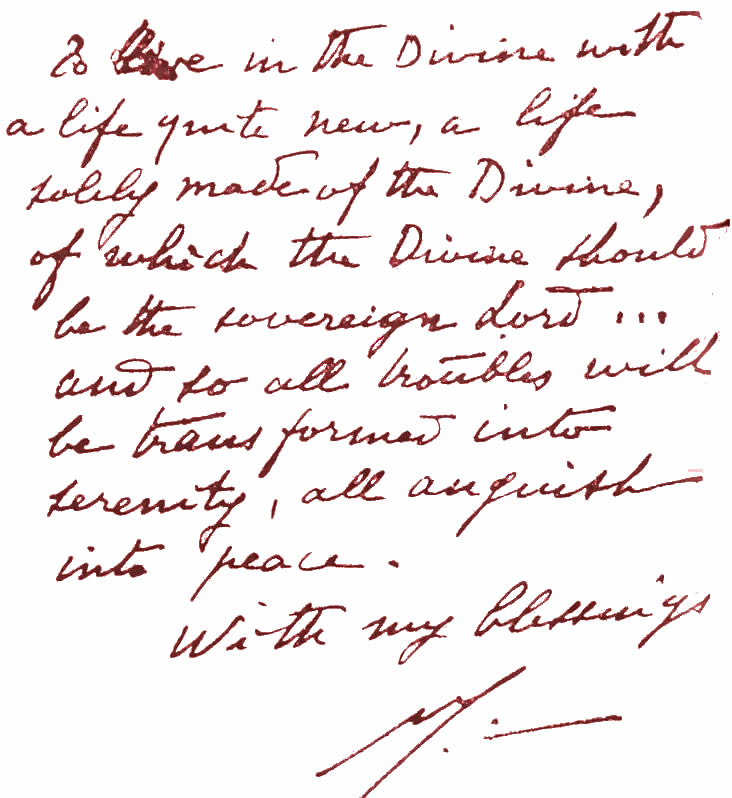 To live in the Divine with
a life quite new, a life
solely made of the Divine,
of which the Divine should
be the sovereign Lord ...
and so all troubles will
be transformed into
serenity, all anguish
into peace.
With my blessings